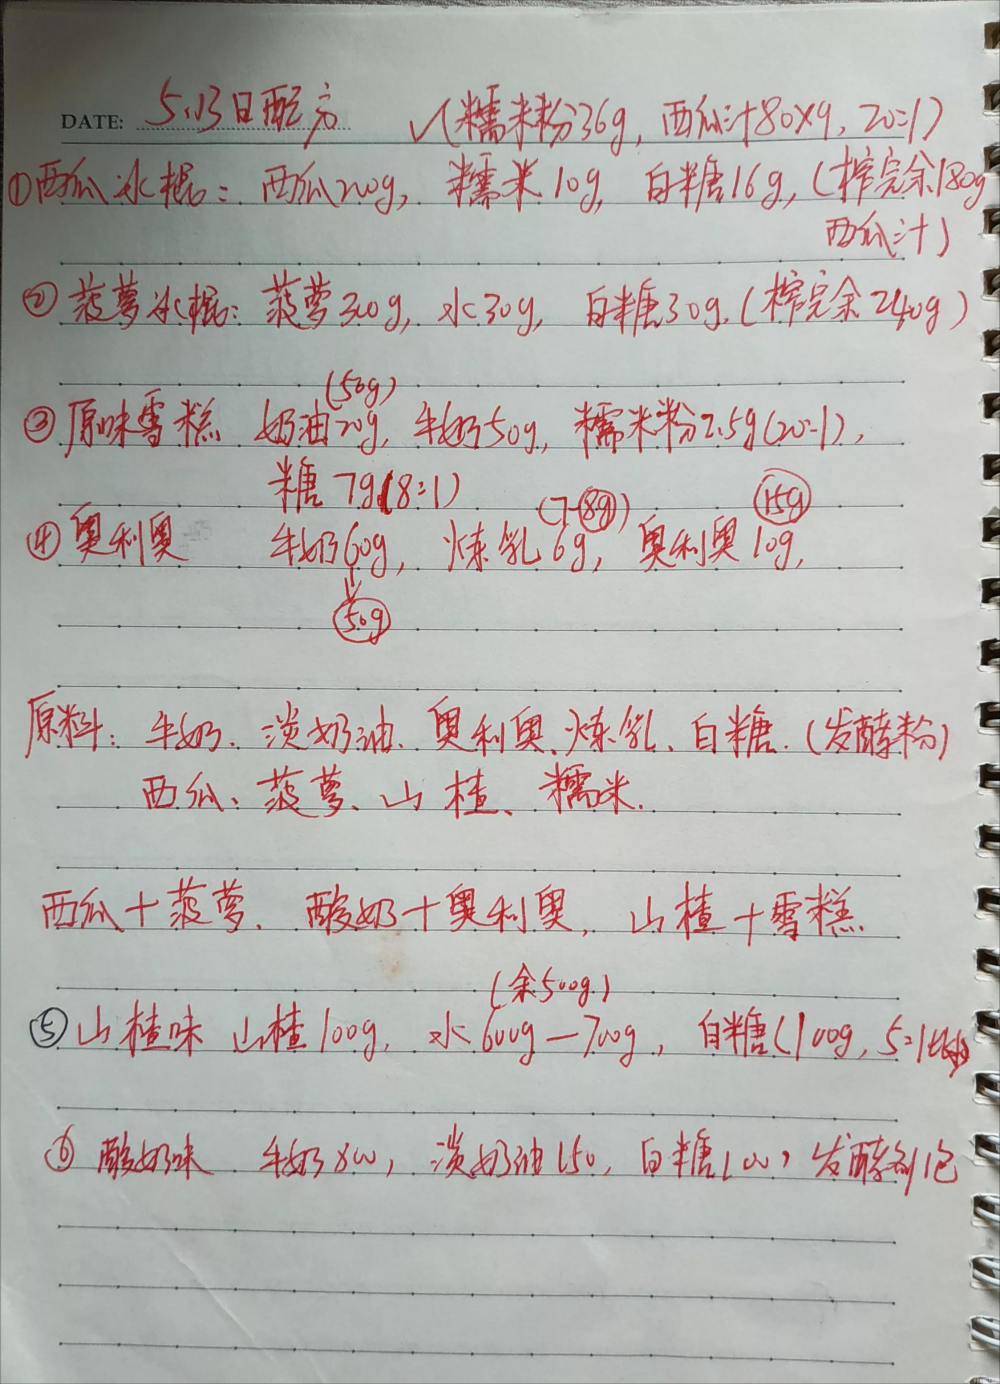 DATE: 5.13日配方
√(糯米粉36g, 西瓜汁80×9, 20:1)
①西瓜冰棍: 西瓜200g, 糯米10g, 白糖16g, (榨完余180g
西瓜汁)
②菠萝冰棍: 菠萝300g, 水30g, 白糖30g. (榨完余240g)
(50g)
③原味雪糕 奶油20g, 牛奶50g, 糯米粉2.5g(20:1),
糖7g(8:1)
(7-8g) 15g
④奥利奥 牛奶60g, 炼乳6g, 奥利奥10g,
50g
原料: 牛奶、淡奶油、奥利奥、炼乳、白糖.(发酵粉)
西瓜、菠萝、山楂、糯米.
西瓜+菠萝、酸奶+奥利奥, 山楂+雪糕
(余500g.)
⑤山楂味 山楂100g, 水600g—700g, 白糖(100g, 5:1
⑥酸奶味 牛奶800, 淡奶油150, 白糖100, 发酵剂1包